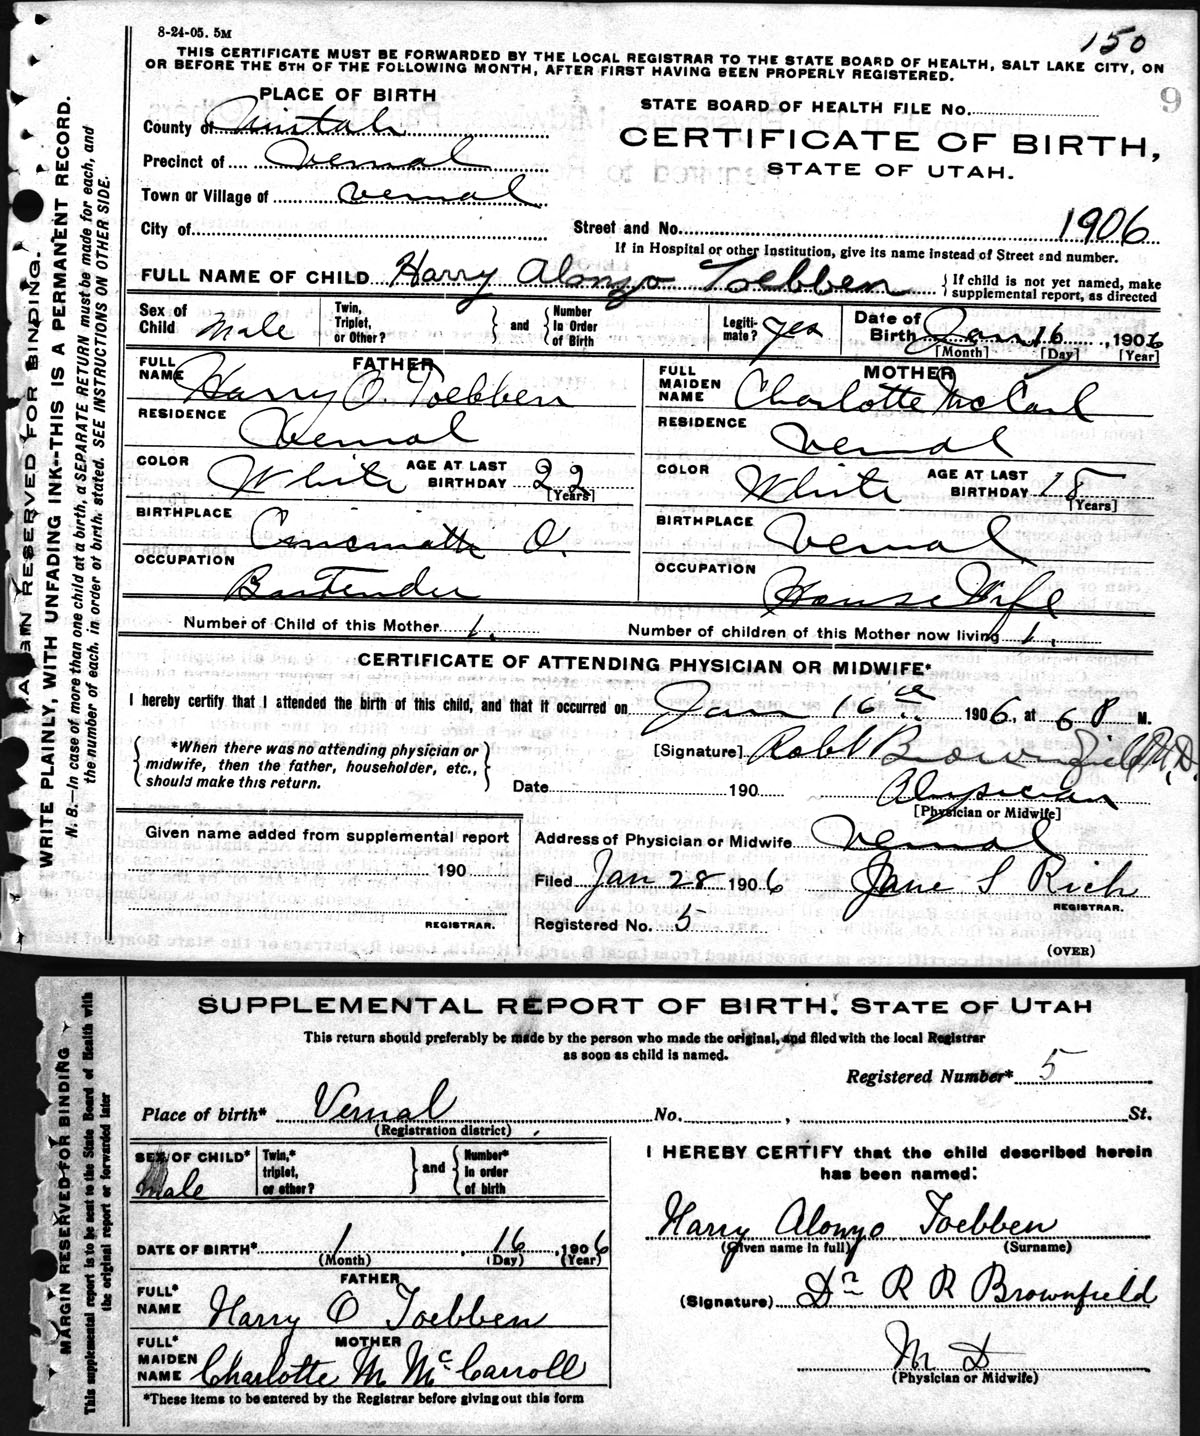 8-24-05. 5M
150
THIS CERTIFICATE MUST BE FORWARDED BY THE LOCAL REGISTRAR TO THE STATE BOARD OF HEALTH, SALT LAKE CITY, ON
OR BEFORE THE 5TH OF THE FOLLOWING MONTH, AFTER FIRST HAVING BEEN PROPERLY REGISTERED.
9
MARGIN RESERVED FOR BINDING.
WRITE PLAINLY, WITH UNFADING INK--THIS IS A PERMANENT RECORD.
N. B.—In case of more than one child at a birth, a SEPARATE RETURN must be made for each, and
the number of each, in order of birth, stated. SEE INSTRUCTIONS ON OTHER SIDE.
PLACE OF BIRTH
County of Uintah
Precinct of Vernal
Town or Village of Vernal
City of
STATE BOARD OF HEALTH FILE No.
CERTIFICATE OF BIRTH,
STATE OF UTAH.
Street and No. 1906
If in Hospital or other Institution, give its name instead of Street and number.
FULL NAME OF CHILD Harry Alonzo Toebben
If child is not yet named, make
supplemental report, as directed
Sex of Child Male
Twin, Triplet, or Other?
and
Number In Order of Birth
Legiti-mate? yes
Date of Birth Jan 16, 1906
[Month] [Day] [Year]
FATHER
FULL NAME Harry O. Toebben
RESIDENCE Vernal
COLOR White AGE AT LAST BIRTHDAY 22
[Years]
BIRTHPLACE Cincinatti O.
OCCUPATION
Bartender
MOTHER
FULL MAIDEN NAME Charlotte McCarl
RESIDENCE Vernal
COLOR White AGE AT LAST BIRTHDAY 18
[Years]
BIRTHPLACE Vernal
OCCUPATION
House Wife
Number of Child of this Mother 1. Number of children of this Mother now living 1.
CERTIFICATE OF ATTENDING PHYSICIAN OR MIDWIFE*
I hereby certify that I attended the birth of this child, and that it occurred on Jan 16 1906, at 6 P M.
*When there was no attending physician or
midwife, then the father, householder, etc.,
should make this return.
[Signature] Robt Brownfield M.D.
Date 190 Physician
[Physician or Midwife]
Given name added from supplemental report
190
REGISTRAR.
Address of Physician or Midwife Vernal
Filed Jan 28 1906 Jane S Rich
REGISTRAR.
Registered No. 5
(OVER)
MARGIN RESERVED FOR BINDING
This supplemental report is to be sent to the State Board of Health with
the original report or forwarded later
SUPPLEMENTAL REPORT OF BIRTH, STATE OF UTAH
This return should preferably be made by the person who made the original, and filed with the local Registrar
as soon as child is named.
Registered Number* 5
Place of birth* Vernal No. , St.
(Registration district)
SEX OF CHILD* Male
Twin,* triplet, or other?
and
Number* in order of birth
DATE OF BIRTH* 1, 16, 1906
(Month) (Day) (Year)
FATHER
FULL* NAME Harry O Toebben
MOTHER
FULL* MAIDEN NAME Charlotte M McCarroll
*These items to be entered by the Registrar before giving out this form
I HEREBY CERTIFY that the child described herein
has been named:
Harry Alonzo Toebben
(Given name in full) (Surname)
(Signature) Dr R R Brownfield
M D
(Physician or Midwife)